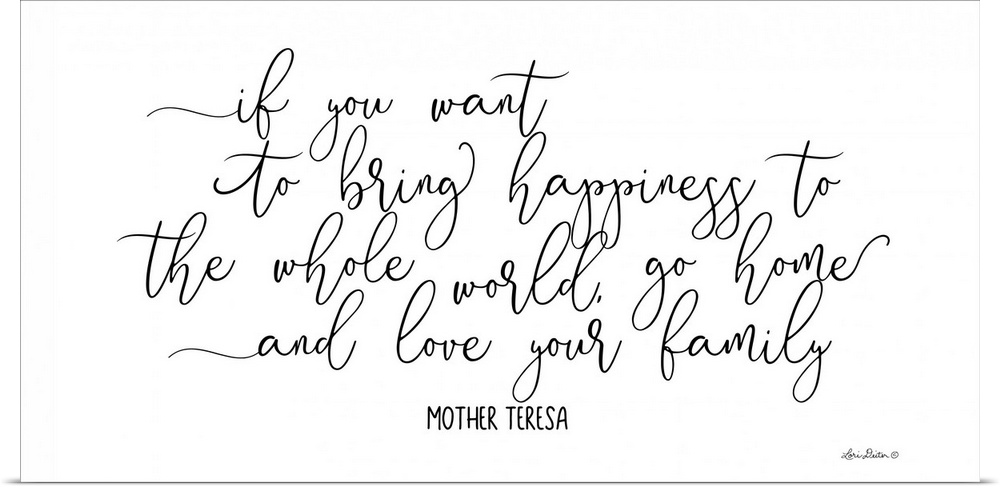 if you want
to bring happiness to
the whole world, go home
and love your family
MOTHER TERESA
Lori Deiter ©